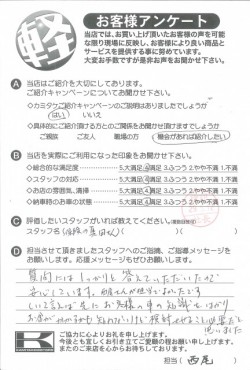 軽
お客様アンケート
当店では、お買い上げ頂いたお客様の声を可能
な限り現場に反映し、お客様により良い商品と
サービスを提供する事に努めています。
大変お手数ですが是非お声をお聞かせ下さい。
A 当店はご紹介を大切にしております。
ご紹介キャンペーンについてお聞かせ下さい。
◇カミタケご紹介キャンペーンのご説明はありましたでしょうか
はい いいえ
◇具体的にご紹介頂ける方とのご関係をお聞かせ頂けますでしょうか
ご親族 ご友人 職場の方 機会があれば紹介したい
B 当店を実際にご利用になった印象をお聞かせ下さい。
◇総合的な満足度 5.大満足 4.満足 3.ふつう 2.やや不満 1.不満
◇スタッフの対応 5.大満足 4.満足 3.ふつう 2.やや不満 1.不満
◇お店の雰囲気、清掃 5.大満足 4.満足 3.ふつう 2.やや不満 1.不満
◇納車時のお車の状態 5.大満足 4.満足 3.ふつう 2.やや不満 1.不満
C 評価したいスタッフがいれば教えてください。
スタッフ名
D 担当させて頂きましたスタッフへのご指摘、ご指導メッセージを
お願いします。応援メッセージもぜひお願いします。
質問にはしっかりと答えていただいたので
安心しています。
いて言えば、もう少しお客様の車の知識
思いました
K
ご協力に心よりお礼を申し上げます。
今後とも宜しくお引き立てご愛顧の程お願い申し上げます。
またのご来店を心からお待ちしております。
担当( 西尾 )